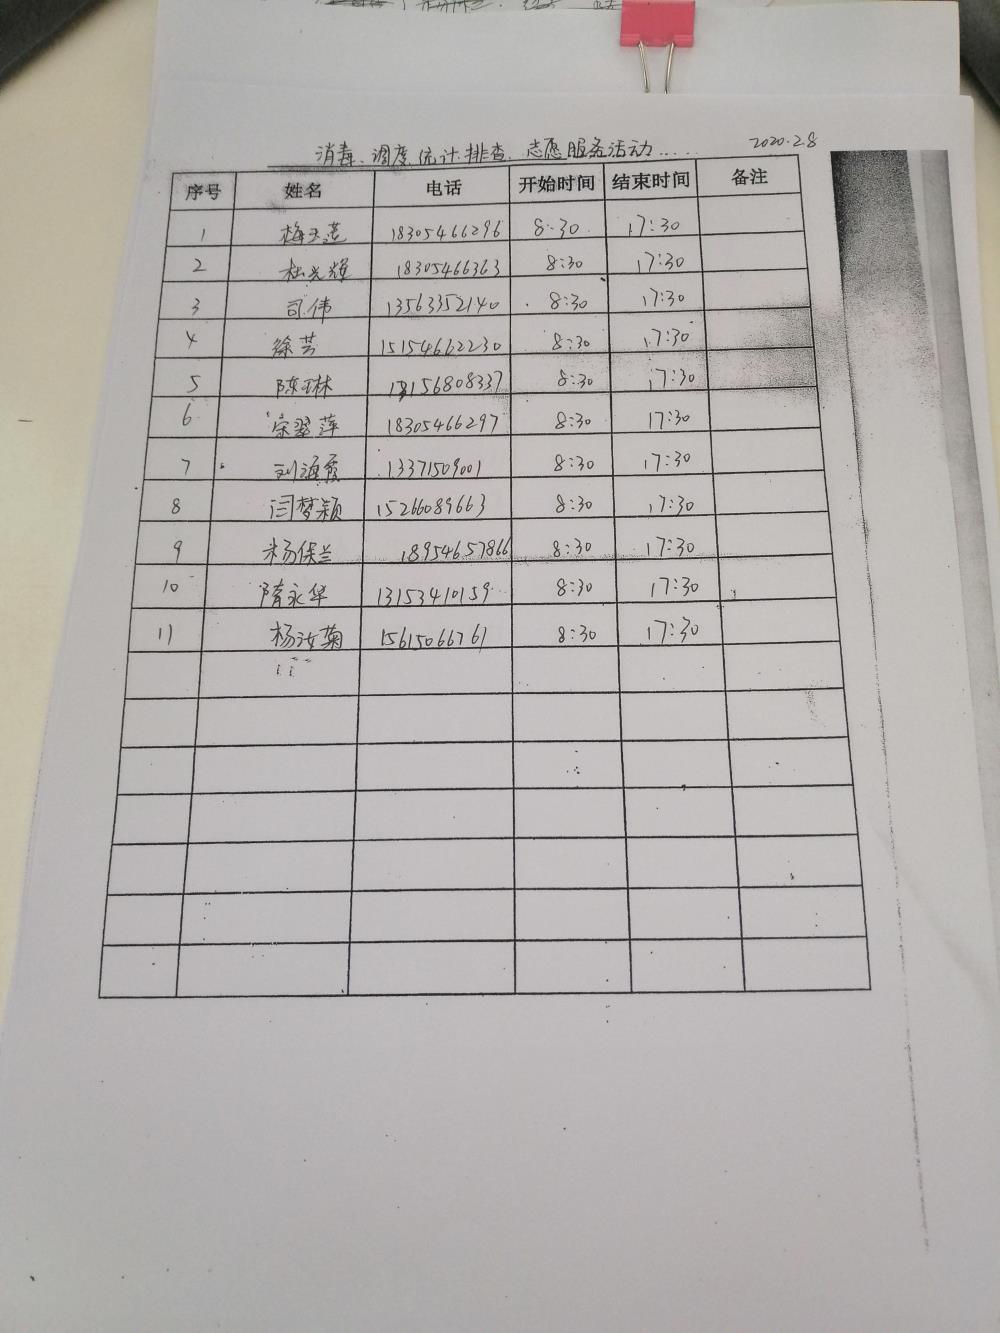 消毒、调度统计排查、志愿服务活动...... 2020.2.8
序号 姓名 电话 开始时间 结束时间 备注
1 梅玉莲 18305466296 8:30 17:30
2 杜光辉 18305466363 8:30 17:30
3 司伟 13563352140 8:30 17:30
4 徐芸 15154662230 8:30 17:30
5 陈琳 8:30 17:30
6 宗翠萍 18305466297 8:30 17:30
7 刘海霞 13371509001 8:30 17:30
8 闫梦颖 15266089663 8:30 17:30
9 杨保兰 18954657866 8:30 17:30
10 隋永华 13153410159 8:30 17:30
11 杨汝菊 15615066761 8:30 17:30